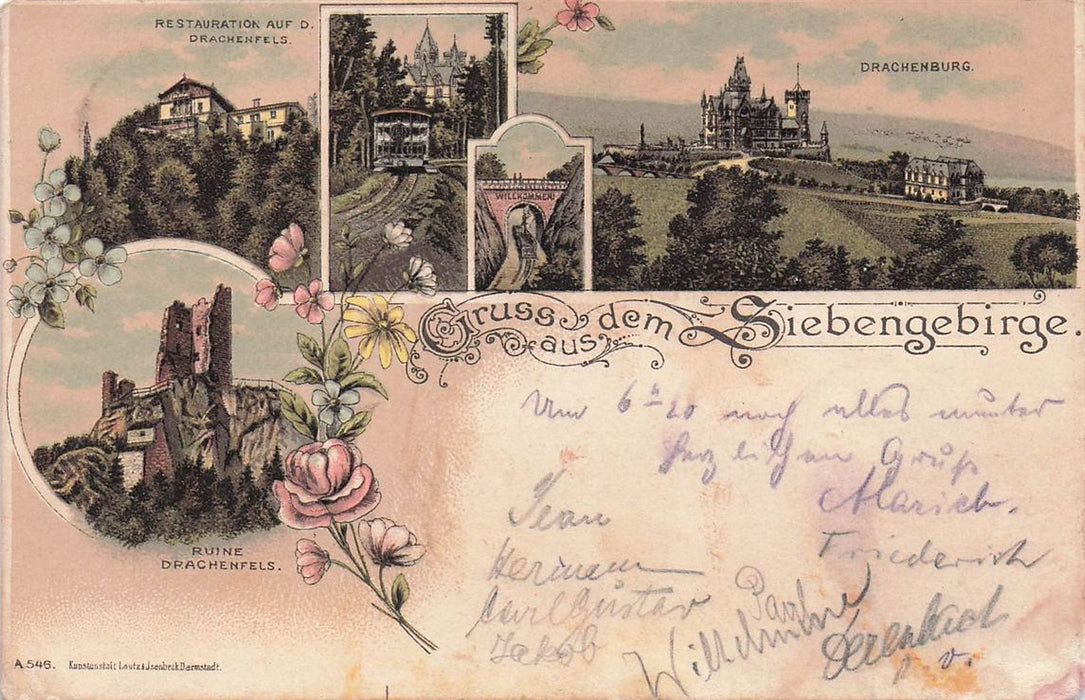 RESTAURATION AUF D.
DRACHENFELS.
DRACHENBURG.
WILLKOMMEN!
Gruss aus dem Siebengebirge.
RUINE
DRACHENFELS.
Um 6 20 noch alles munter
herzlichen Gruß
Jean
Friederich
Hermann
Carl Gustav
Jakob
Wilhelmine
A 546. Kunstanstalt Lautz & Jsenbeck Darmstadt.